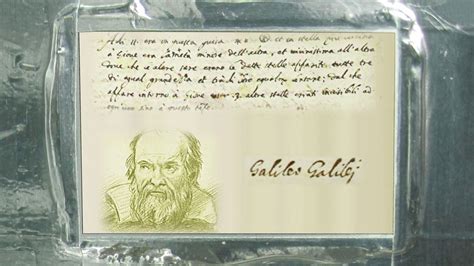 Adì 11. era in questa guisa et la stella più vicina
à Giove era la metà minore dell'altra, et vicinissima all'altra
dove che le altre sere erano le dette stelle apparite tutte tre
di equal grandezza et tra di loro equalm. lontane; dal che
appare intorno à Giove esser 3. altre stelle erranti invisibili ad
ogn'uno sino à questo tempo.
Galileo Galilei